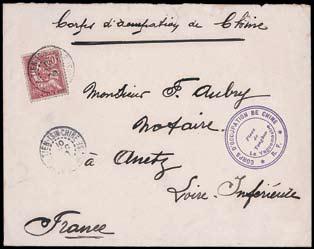 Corps d'occupation de Chine
Monsieur F. Aubry
Notaire
à Anetz
Loire Inférieure
France
TIEN-TSIN CHINE
CORPS D'OCCUPATION DE CHINE
Place de